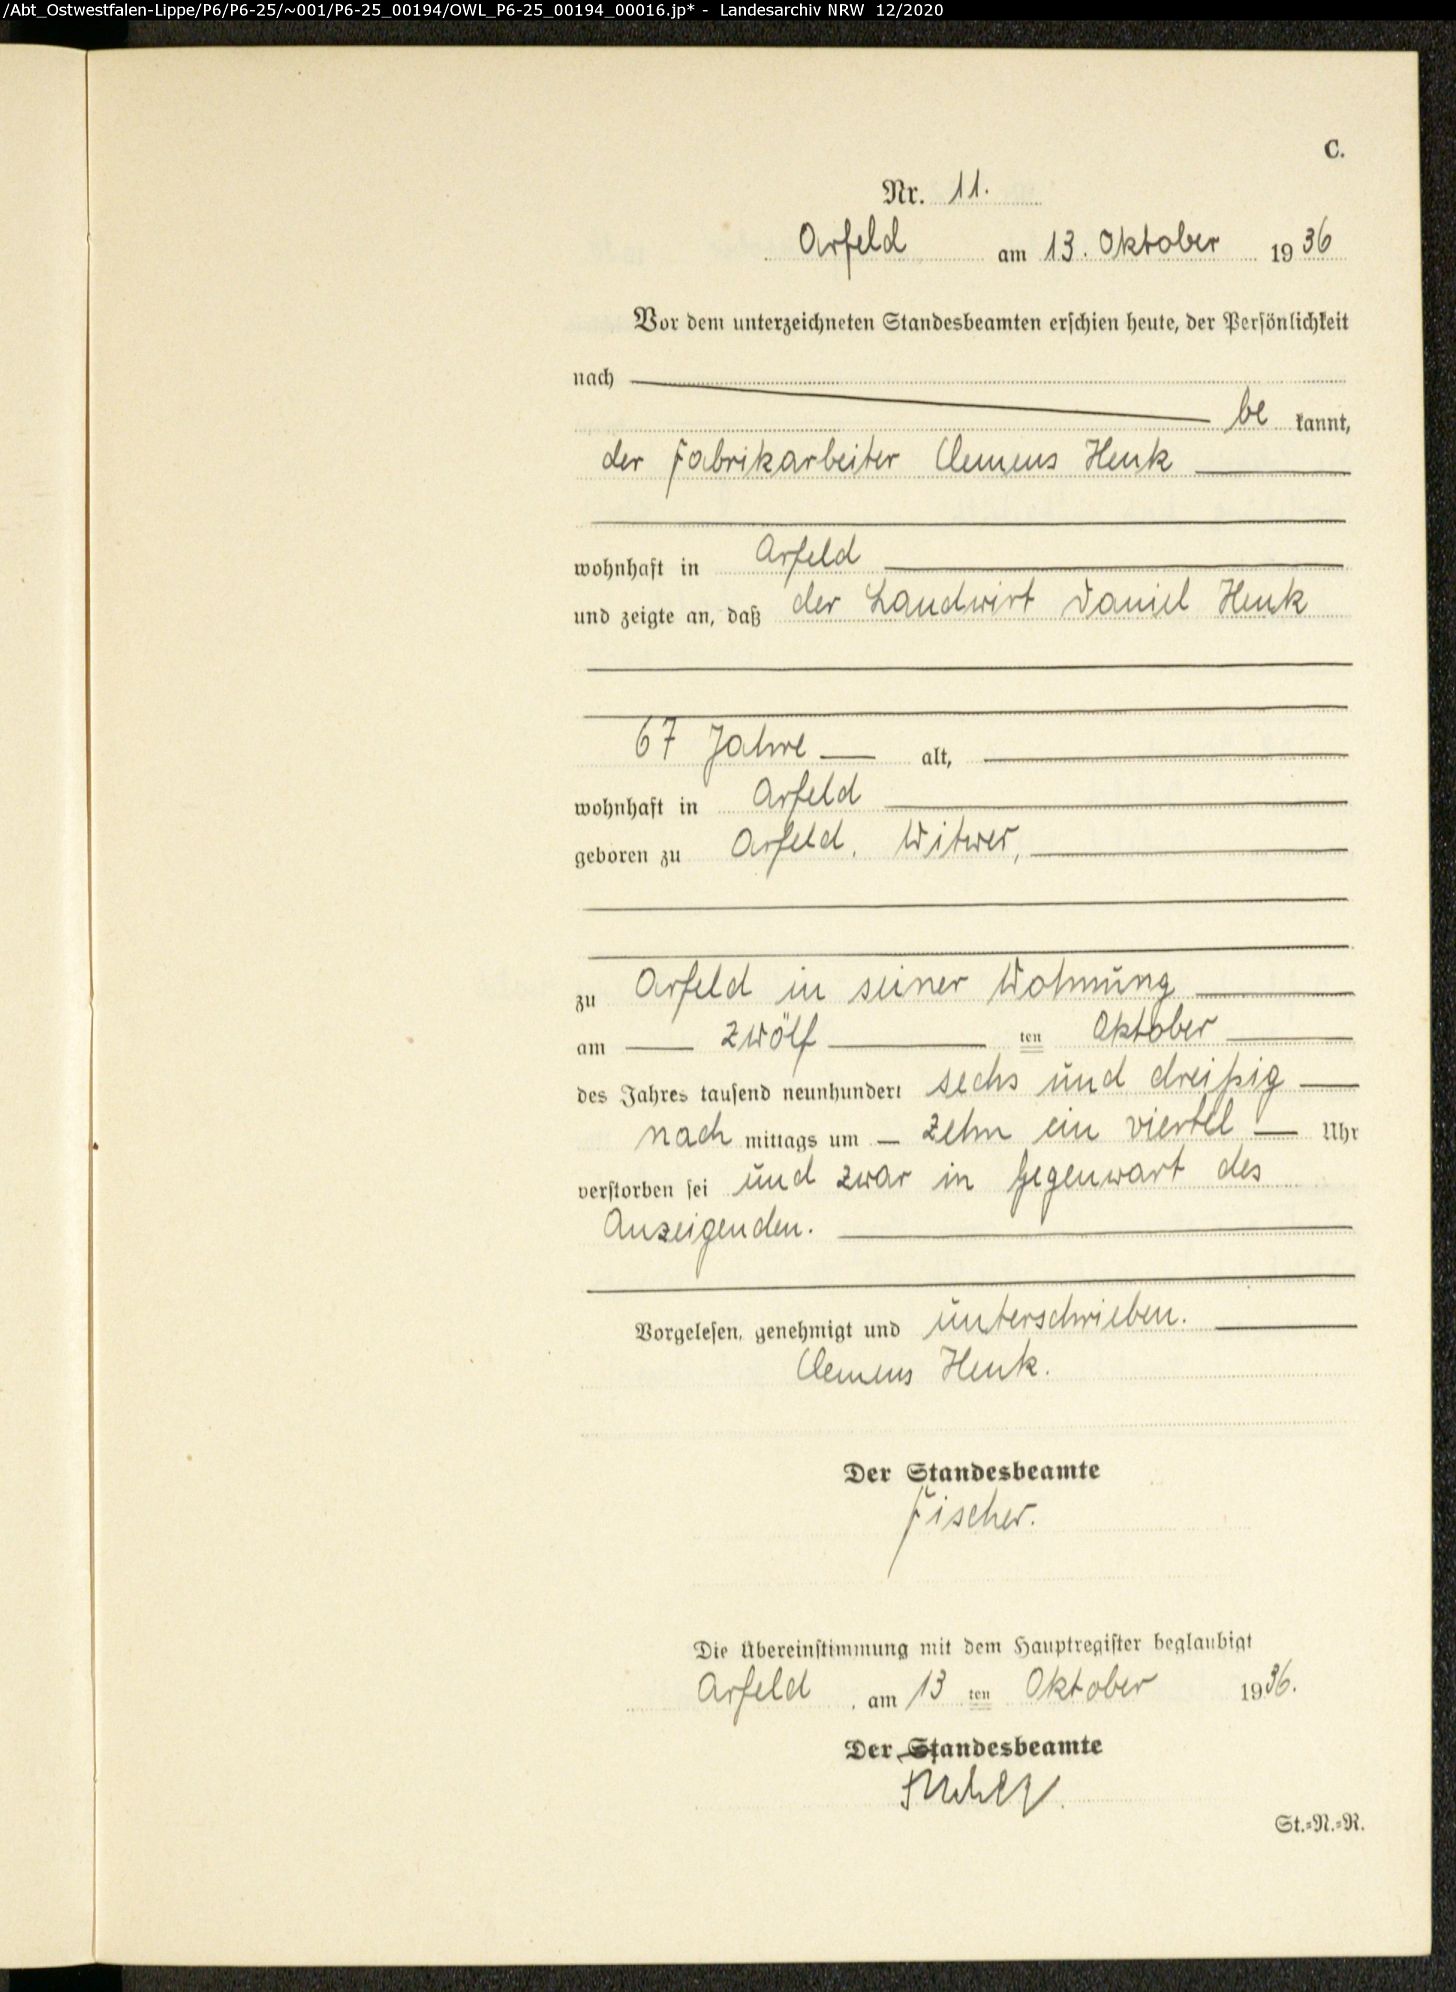 /Abt_Ostwestfalen-Lippe/P6/P6-25/~001/P6-25_00194/OWL_P6-25_00194_00016.jp* - Landesarchiv NRW 12/2020
C.
Nr. 11.
Arfeld am 13. Oktober 1936
Vor dem unterzeichneten Standesbeamten erschien heute, der Persönlichkeit
nach
be kannt,
der Fabrikarbeiter Clemens Henk
wohnhaft in Arfeld
und zeigte an, daß der Landwirt Daniel Henk
67 Jahre alt,
wohnhaft in Arfeld
geboren zu Arfeld, Witwer,
zu Arfeld in seiner Wohnung
am zwölf ten Oktober
des Jahres tausend neunhundert sechs und dreißig
nach mittags um zehn ein viertel Uhr
verstorben sei und zwar in Gegenwart des
Anzeigenden.
Vorgelesen, genehmigt und unterschrieben.
Clemens Henk.
Der Standesbeamte
Fischer.
Die Übereinstimmung mit dem Hauptregister beglaubigt
Arfeld, am 13 ten Oktober 1936.
Der Standesbeamte
St.=N.=R.